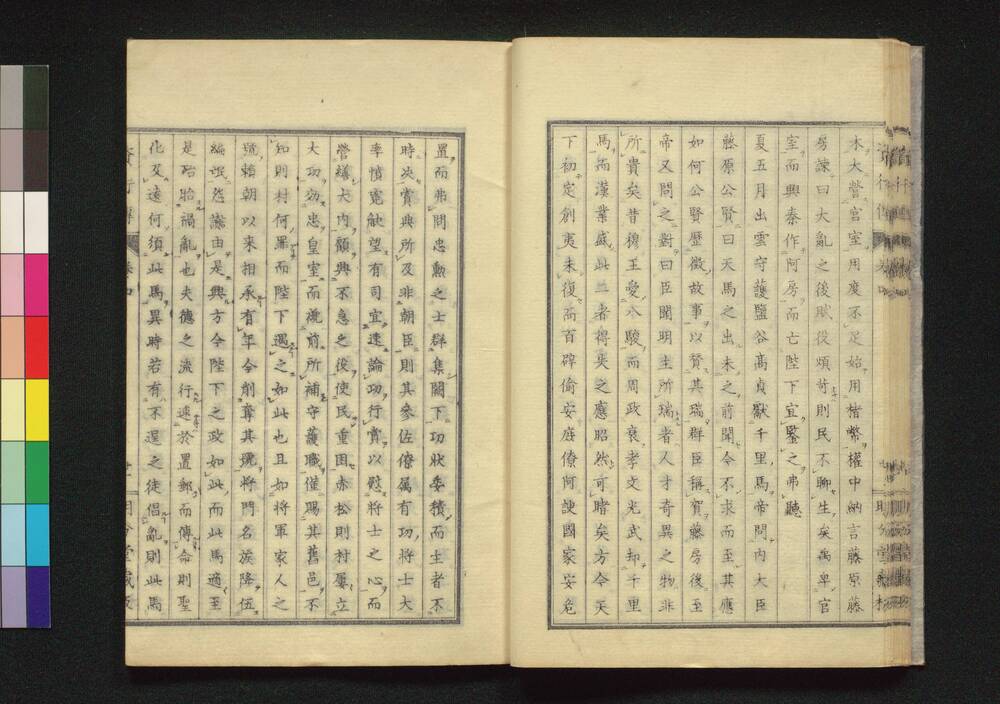 木大營宮室用度不足始用楮幣權中納言藤原藤
房諫曰大亂之後賦役煩苛則民不聊生矣禹卑宮
室而興秦作阿房而亡陛下宜鑒之弗聽
夏五月出雲守護鹽谷高貞獻千里馬帝問內大臣
藤原公賢曰天馬之出未之前聞今不求而至其應
如何公賢歷徵故事以贊其瑞群臣稱賀藤房後至
帝又問之對曰臣聞明主所瑞者人才奇異之物非
所貴矣昔穆王愛八駿而周政衰孝文光武却千里
馬而漢業盛此三者得失之應昭然可睹矣方今天
下初定創夷未復而百辟偷安庭僚阿諛國家安危
置而弗問忠勲之士群集闕下功狀委積而主者不
時决賞典所及非朝臣則其參佐僚属有功將士大
率憤寃觖望有司宜速論功行賞以慰將士之心而
營繕大内顧興不急之役使民重困赤松則村屢立
大功効忠皇室而褫前所補守護職僅賜其舊邑不
知則村何罪而陛下遇之如此也且如將軍家人之
號賴朝以來相承有年今削奪其號將門名族降伍
編氓怨讟由是興方今陛下之政如此而此馬適至
是殆胎禍亂也夫德之流行速於置郵而傳命則聖
化及遠何須此馬異時若有不逞之徒倡亂則此馬